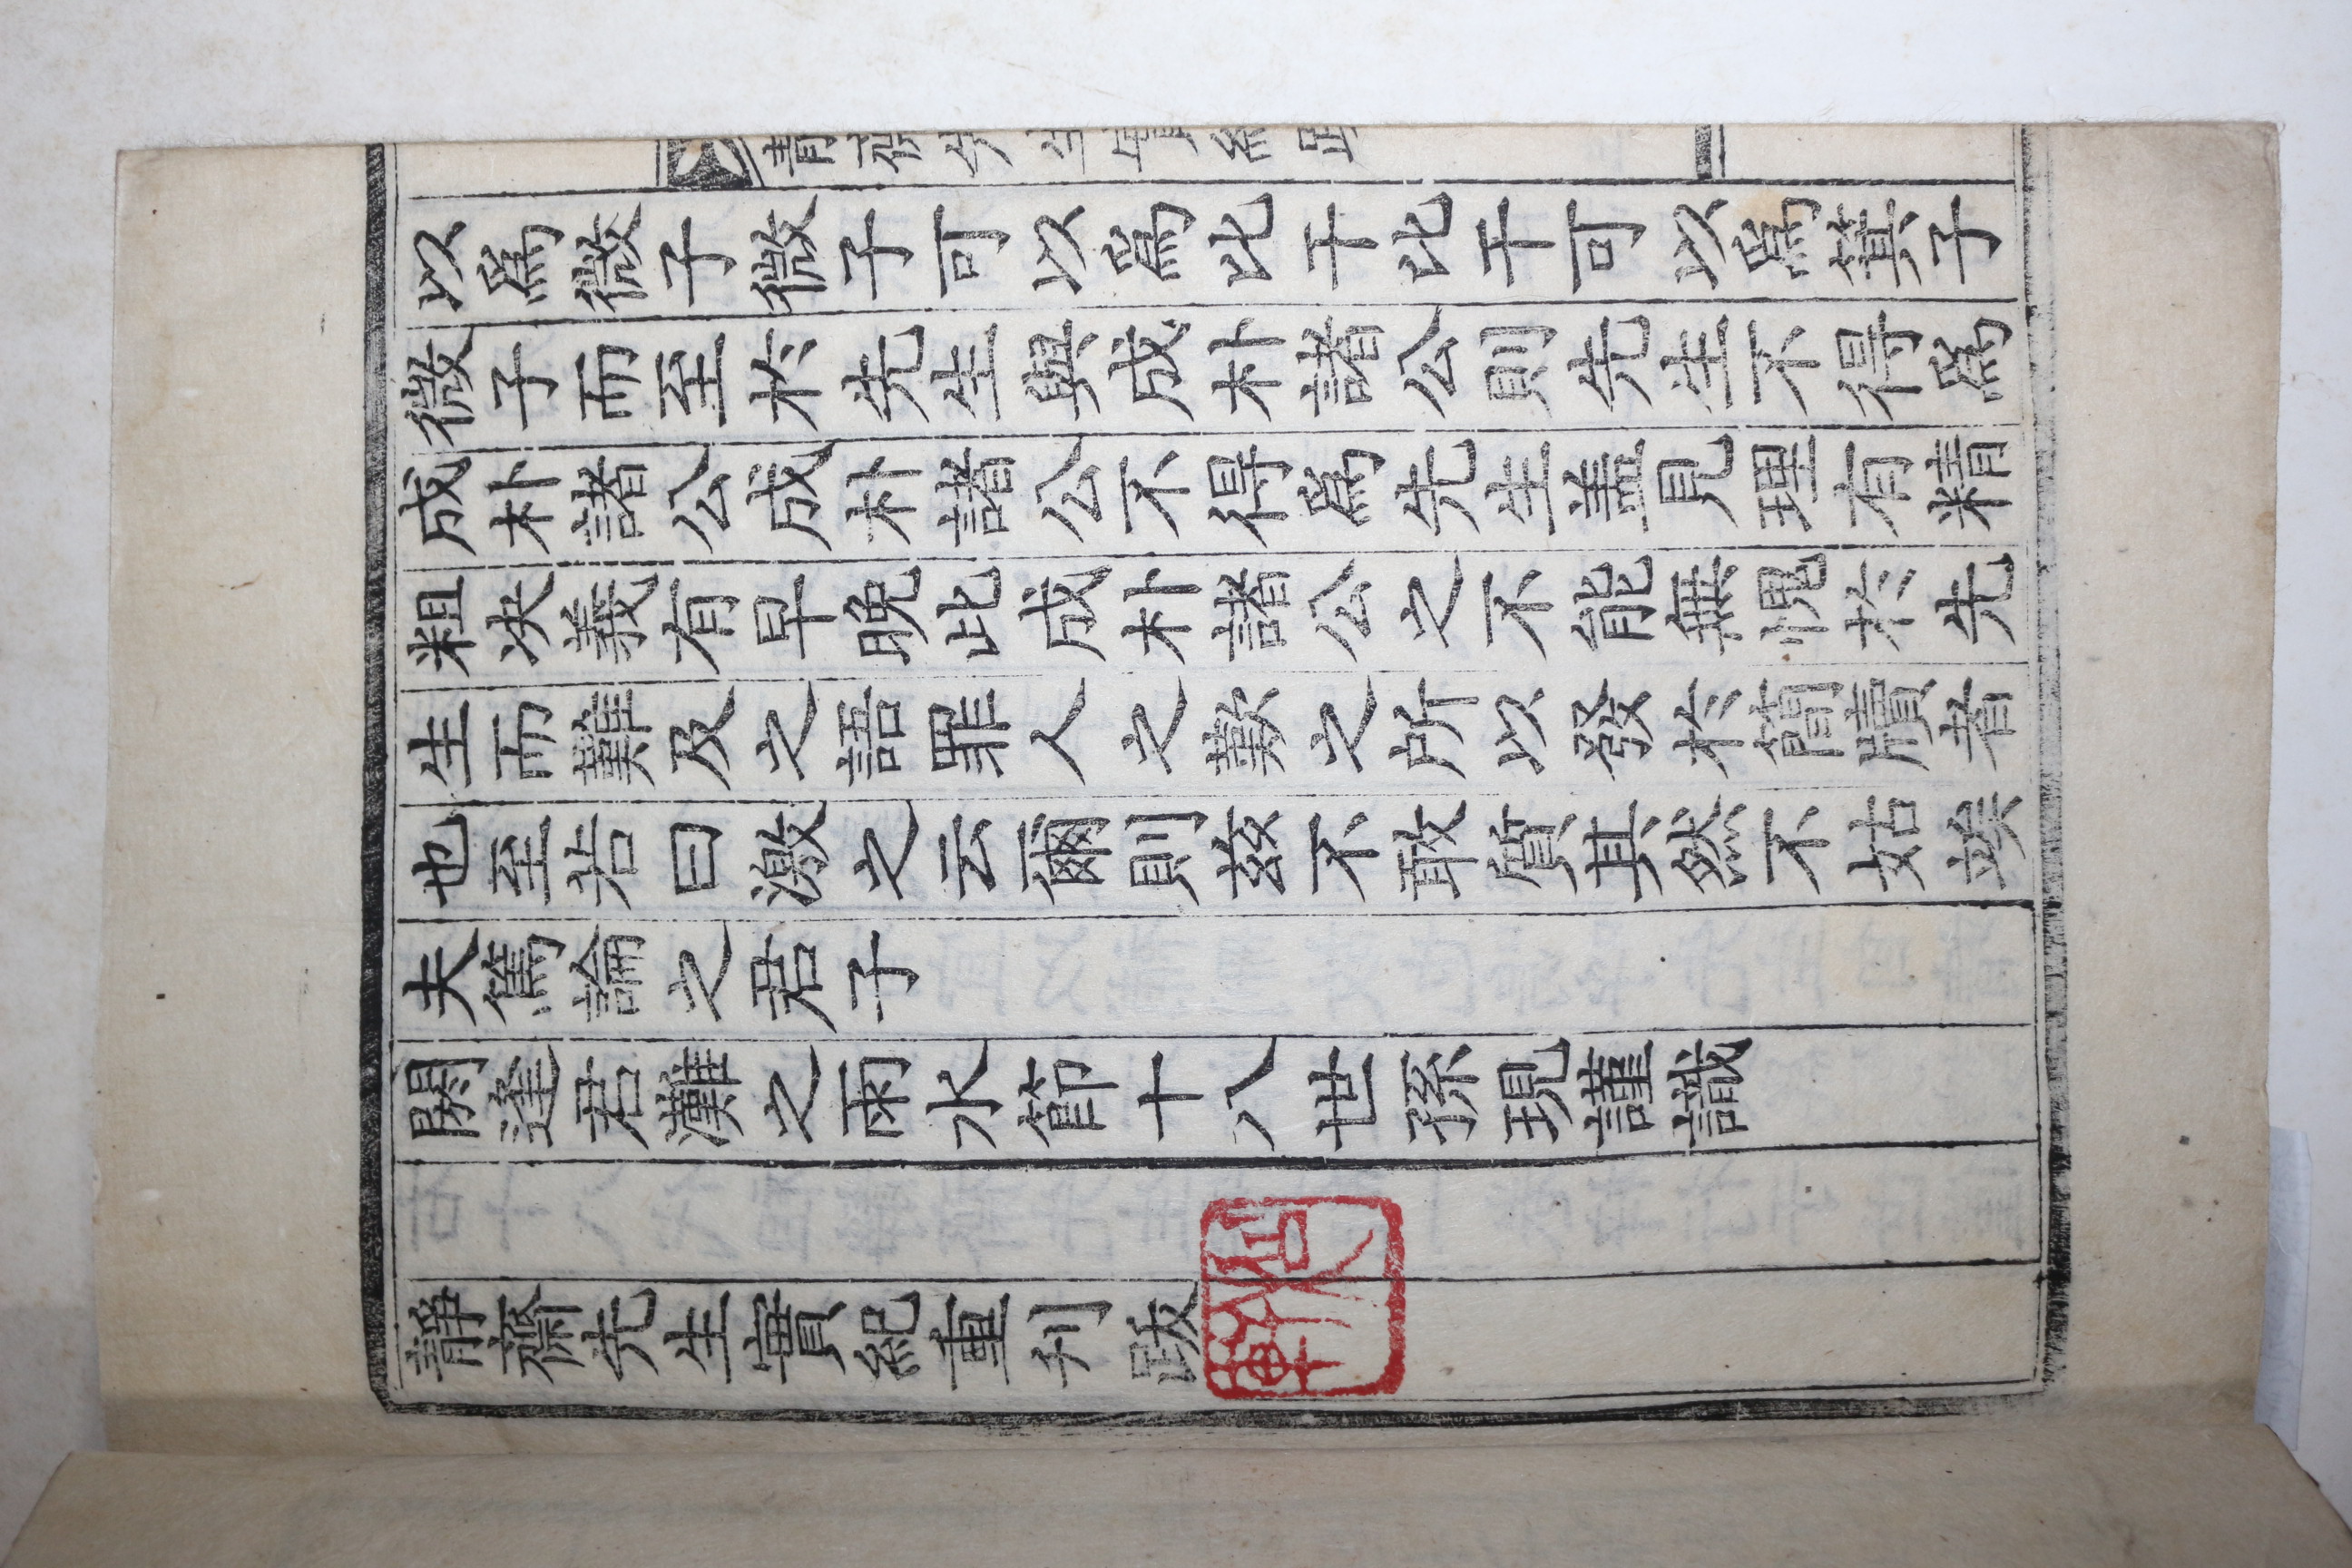 靜齋先生實紀跋
以爲微子微子可以爲比干比干可以爲箕子
微子而至於先生與成朴諸公則先生不得爲
成朴諸公成朴諸公不得爲先生盖見理有精
粗决義有早晚此成朴諸公之不能無愧於先
生而難及之語罪人之歎之所以發於簡牘者
也至若曰激之云爾則玆不敢質其然不姑竢
夫篤論之君子
閼逢君灘之雨水節十八世孫現謹識
靜齋先生實紀重刋跋